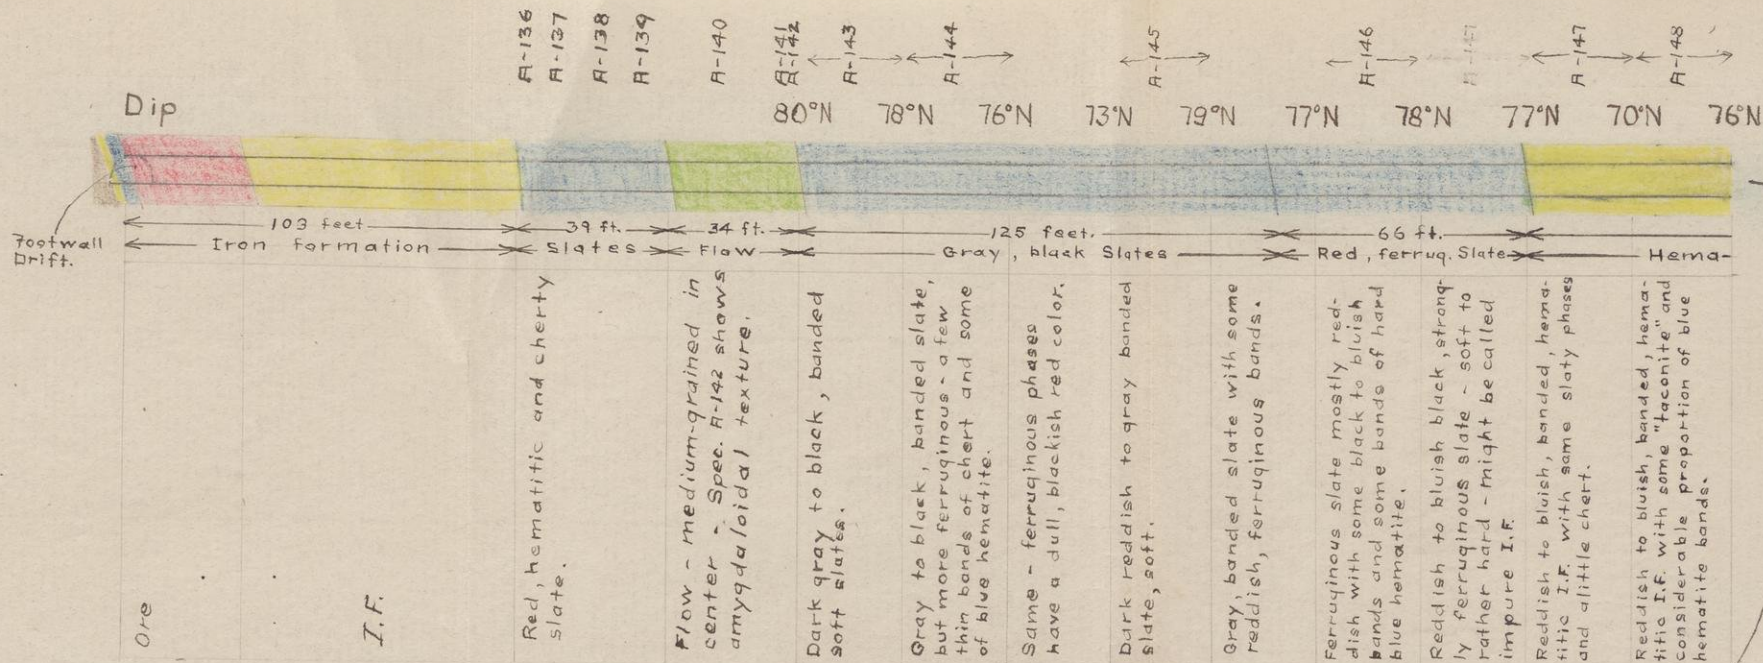 A-136
A-137
A-138
A-139
A-140
A-141
A-142
A-143
A-144
A-145
A-146
A-147
A-148
Dip
80°N 78°N 76°N 73°N 79°N 77°N 78°N 77°N 70°N 76°N
103 feet 39 ft. 34 ft. 125 feet. 66 ft.
Footwall
Drift.
Iron formation Slates Flow Gray, black Slates Red, ferrug. Slate Hema-
Ore
I.F.
Red, hematitic and cherty
slate.
Flow - medium-grained in
center - Spec. A-142 shows
amygdaloidal texture.
Dark gray to black, banded
soft slates.
Gray to black, banded slate,
but more ferruginous - a few
thin bands of chert and some
of blue hematite.
Same - ferruginous phases
have a dull, blackish red color.
Dark reddish to gray banded
slate, soft.
Gray, banded slate with some
reddish, ferruginous bands.
Ferruginous slate mostly red-
dish with some black to bluish
bands and some bands of hard
blue hematite.
Reddish to bluish black, strong-
ly ferruginous slate - soft to
rather hard - might be called
impure I.F.
Reddish to bluish, banded, hema-
titic I.F. with some slaty phases
and alittle chert.
Reddish to bluish, banded, hema-
titic I.F. with some "taconite" and
considerable proportion of blue
hematite bands.